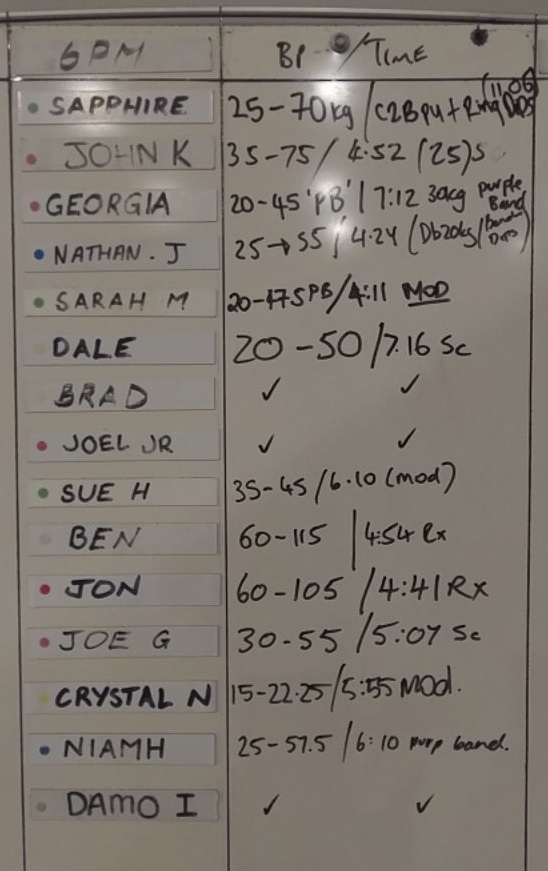 6PM BP / TIME
SAPPHIRE 25-70kg / C2B Pu + Ring Dips (11:06)
JOHN K 35-75 / 4:52 (25)s
GEORGIA 20-45 'PB' / 7:12 30kg purple Band
NATHAN.J 25→55 / 4.24 (Db20kg/band Dips)
SARAH M 20-47.5 PB / 4:11 MOD
DALE 20-50 / 7.16 Sc
BRAD ✓ ✓
JOEL JR ✓ ✓
SUE H 35-45 / 6.10 (mod)
BEN 60-115 | 4:54 Rx
JON 60-105 / 4:41 RX
JOE G 30-55 / 5:07 Sc
CRYSTAL N 15-22.25 / 5:55 MOd.
NIAMH 25-57.5 / 6:10 purp band.
DAMO I ✓ ✓